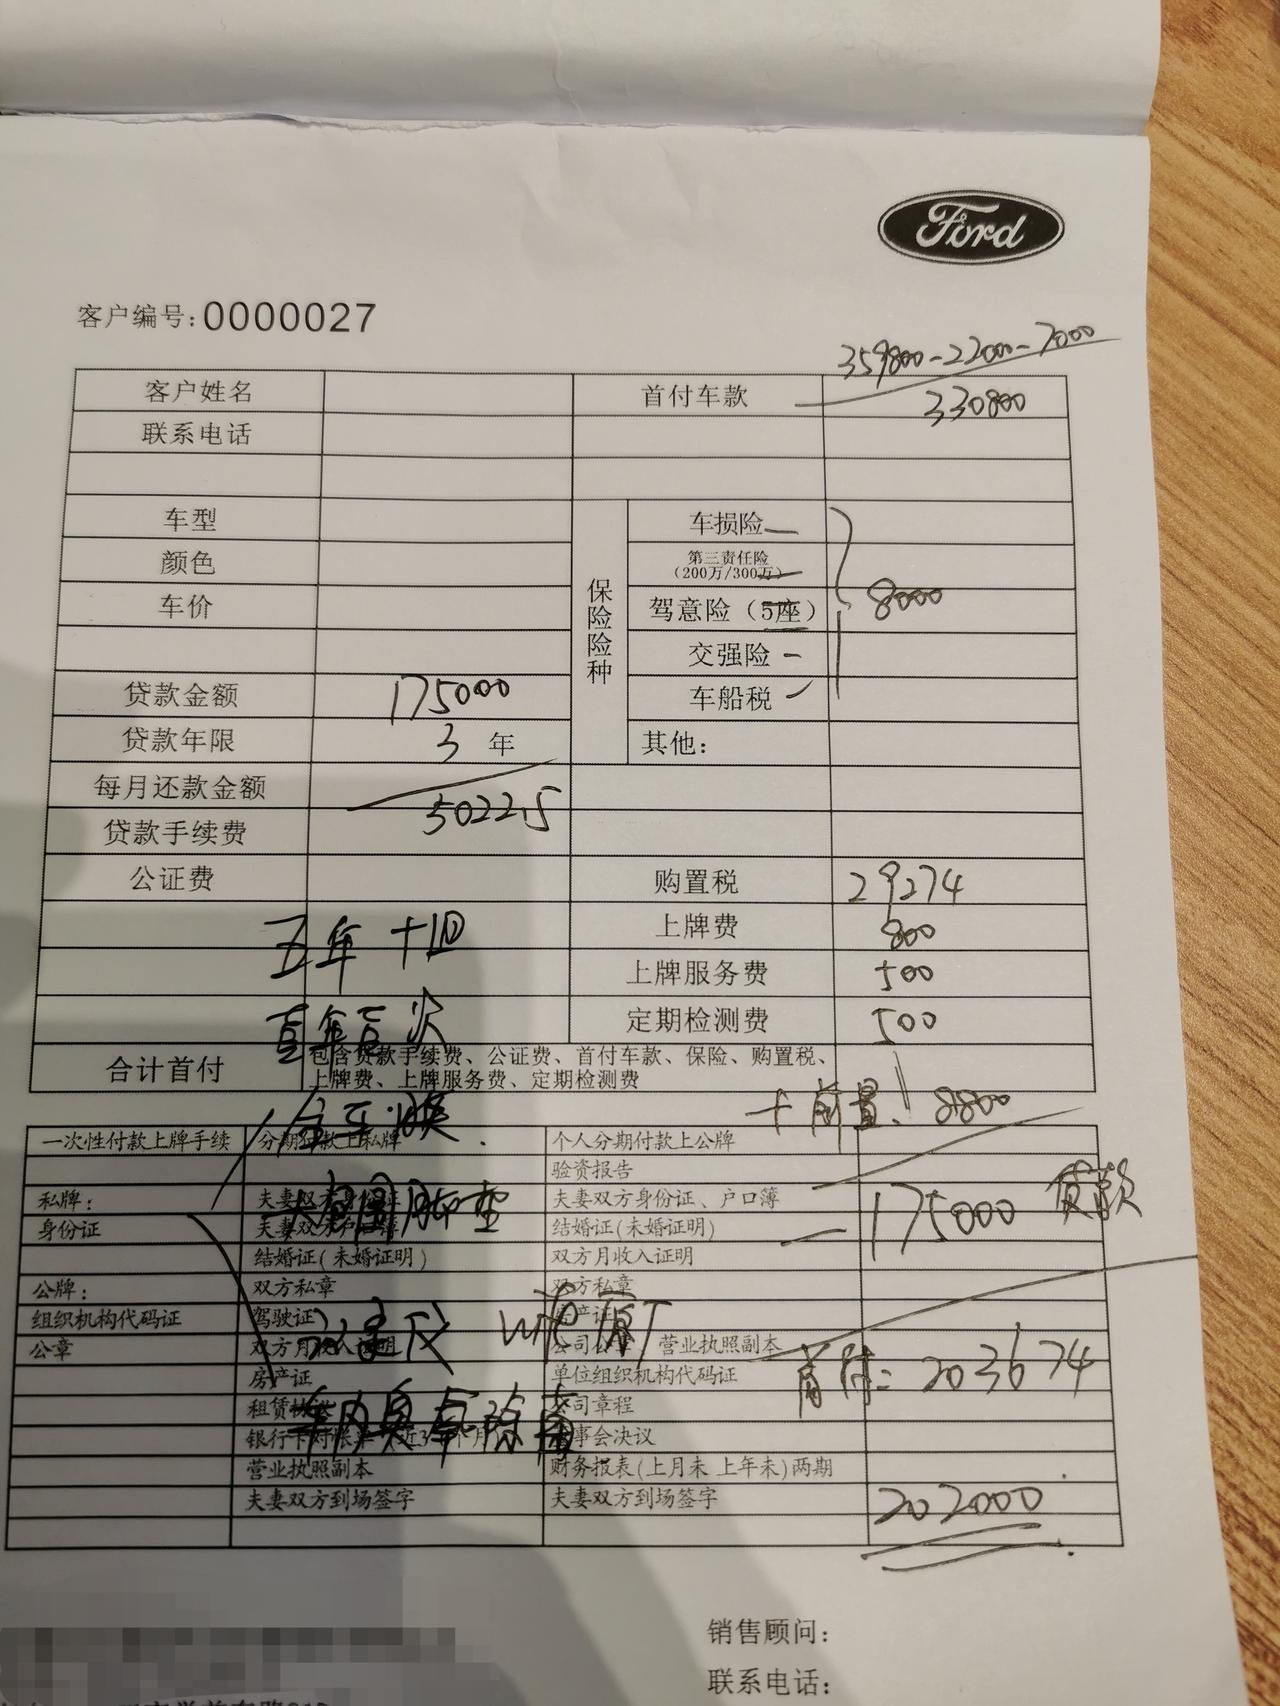 Ford
客户编号：0000027
359800-22000-7000
客户姓名 首付车款 330800
联系电话
车型 保险险种 车损险
颜色 第三责任险
(200万/300万)
车价 驾意险（5座） 8000
交强险
贷款金额 175000 车船税
贷款年限 3 年 其他：
每月还款金额
50225
贷款手续费
公证费 购置税 29274
五年十四 上牌费 800
上牌服务费 500
首年首次 定期检测费 500
合计首付 包含贷款手续费、公证费、首付车款、保险、购置税、
上牌费、上牌服务费、定期检测费
全车膜 十前置 8800
一次性付款上牌手续 分期付款上私牌 个人分期付款上公牌
验资报告
私牌： 夫妻双方身份证 夫妻双方身份证、户口簿
大包围脚垫 -175000 贷款
身份证 夫妻双方户口簿 结婚证(未婚证明)
结婚证(未婚证明) 双方月收入证明
公牌： 双方私章 双方私章
组织机构代码证 驾驶证 房产证
公章 双方月收入证明 公司公章、营业执照副本
首付：203674
房产证 单位组织机构代码证
租赁 公司章程
车内臭氧除菌
银行卡对帐单 董事会决议
营业执照副本 财务报表(上月末 上年末)两期
夫妻双方到场签字 夫妻双方到场签字 202000
销售顾问：
联系电话：